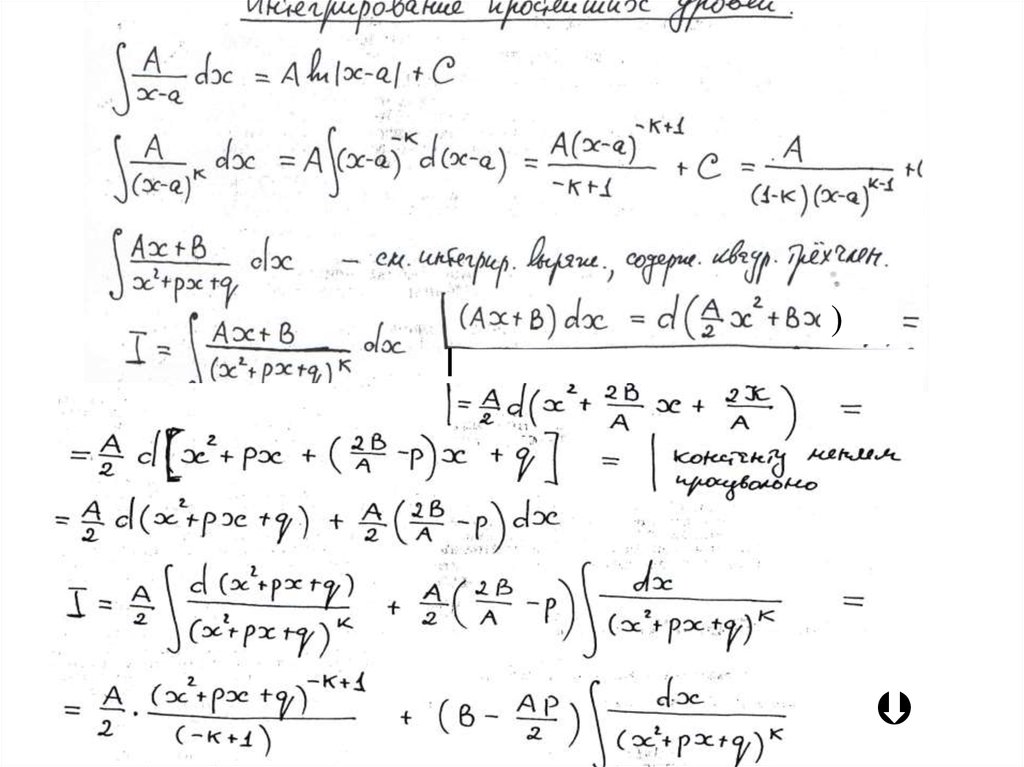 Интегрирование простейших дробей.
∫ A/(x-a) dx = A ln|x-a| + C
∫ A/(x-a)^K dx = A∫(x-a)^{-K} d(x-a) = A(x-a)^{-K+1}/(-K+1) + C = A/((1-K)(x-a)^{K-1}) + C
∫ (Ax+B)/(x²+px+q) dx – см. интегрир. выраж., содерж. квадр. трёхчлен.
I = ∫ (Ax+B)/(x²+px+q)^K dx | (Ax+B)dx = d(A/2 x² + Bx) =
| = A/2 d(x² + 2B/A x + 2K/A) =
= A/2 d[x²+px + (2B/A - p)x + q] = | константу меняем
произвольно
= A/2 d(x²+px+q) + A/2 (2B/A - p)dx
I = A/2 ∫ d(x²+px+q)/(x²+px+q)^K + A/2 (2B/A - p) ∫ dx/(x²+px+q)^K =
= A/2 · (x²+px+q)^{-K+1}/(-K+1) + (B - Ap/2) ∫ dx/(x²+px+q)^K